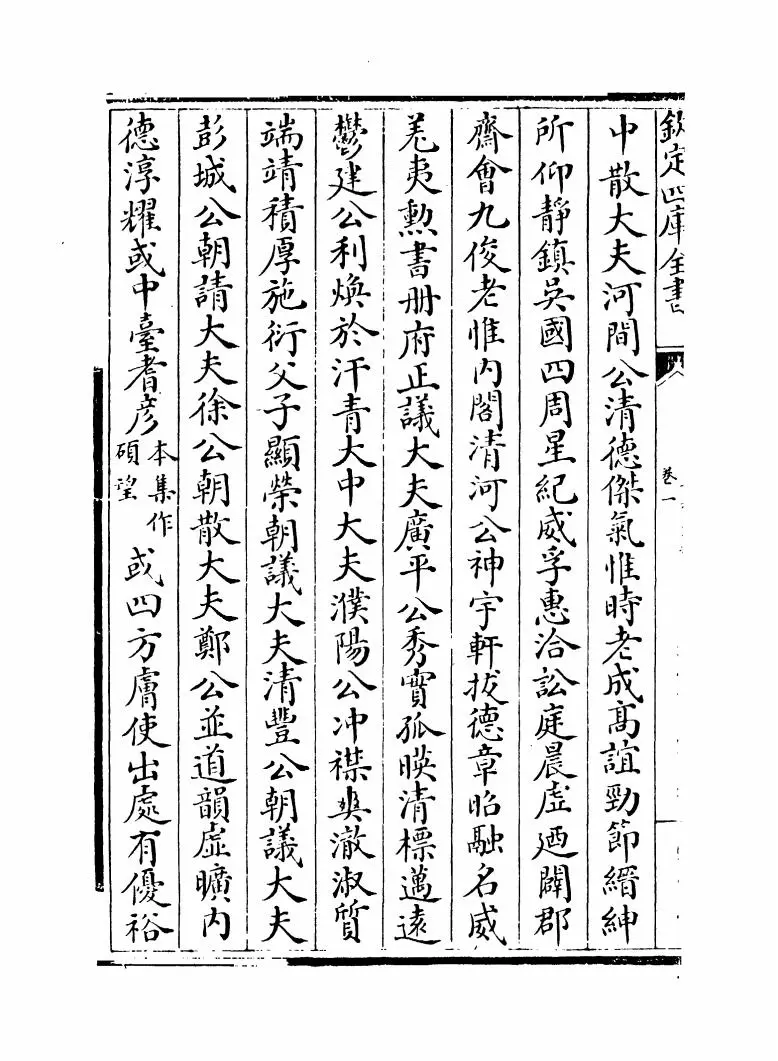 欽定四庫全書
卷一
中散大夫河間公清德傑氣惟時老成高誼勁節縉紳
所仰靜鎮吳國四周星紀威孚惠洽訟庭晨虛廼闢郡
齋會九俊老惟内閣清河公神宇軒拔德章昭融名威
羌夷勲書册府正議大夫廣平公秀實孤暎清標邁遠
鬱建公利煥於汗青大中大夫濮陽公冲襟奥澈淑質
端靖積厚施衍父子顯榮朝議大夫清豐公朝議大夫
彭城公朝請大夫徐公朝散大夫鄭公並道韻虛曠内
德淳耀或中臺耆彦本集作碩望或四方膚使出處有優裕